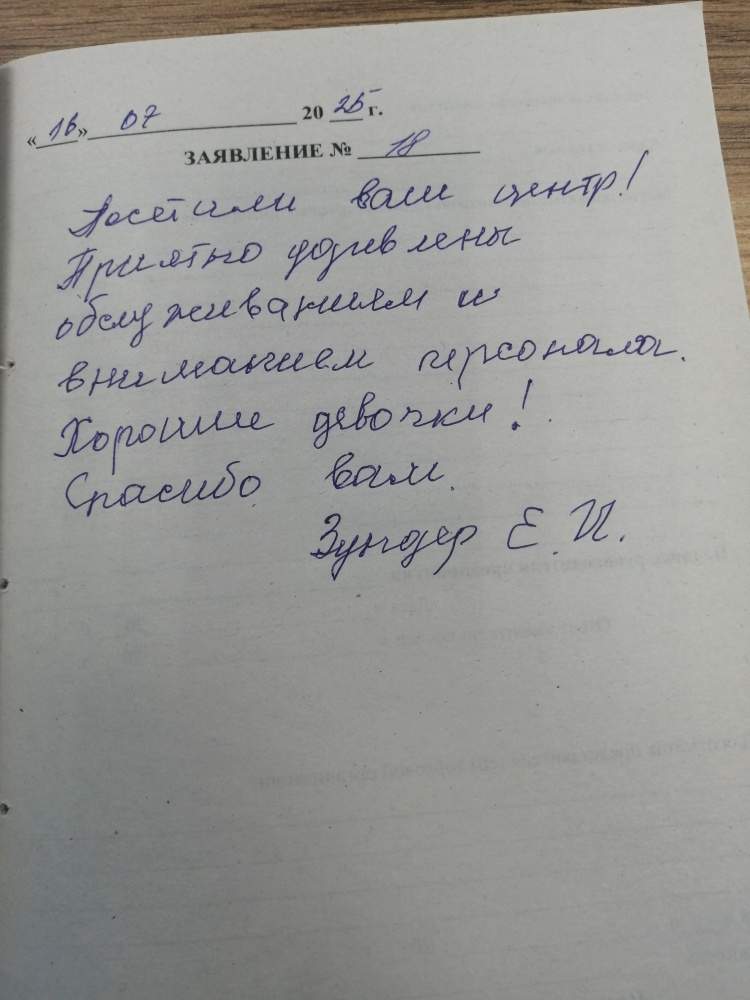 « 16 » 07 2025 г.
ЗАЯВЛЕНИЕ № 18
Посетили ваш центр!
Приятно удивлены
обслуживанием и
вниманием персонала.
Хорошие девочки!
Спасибо вам.
Зундер Е. И.